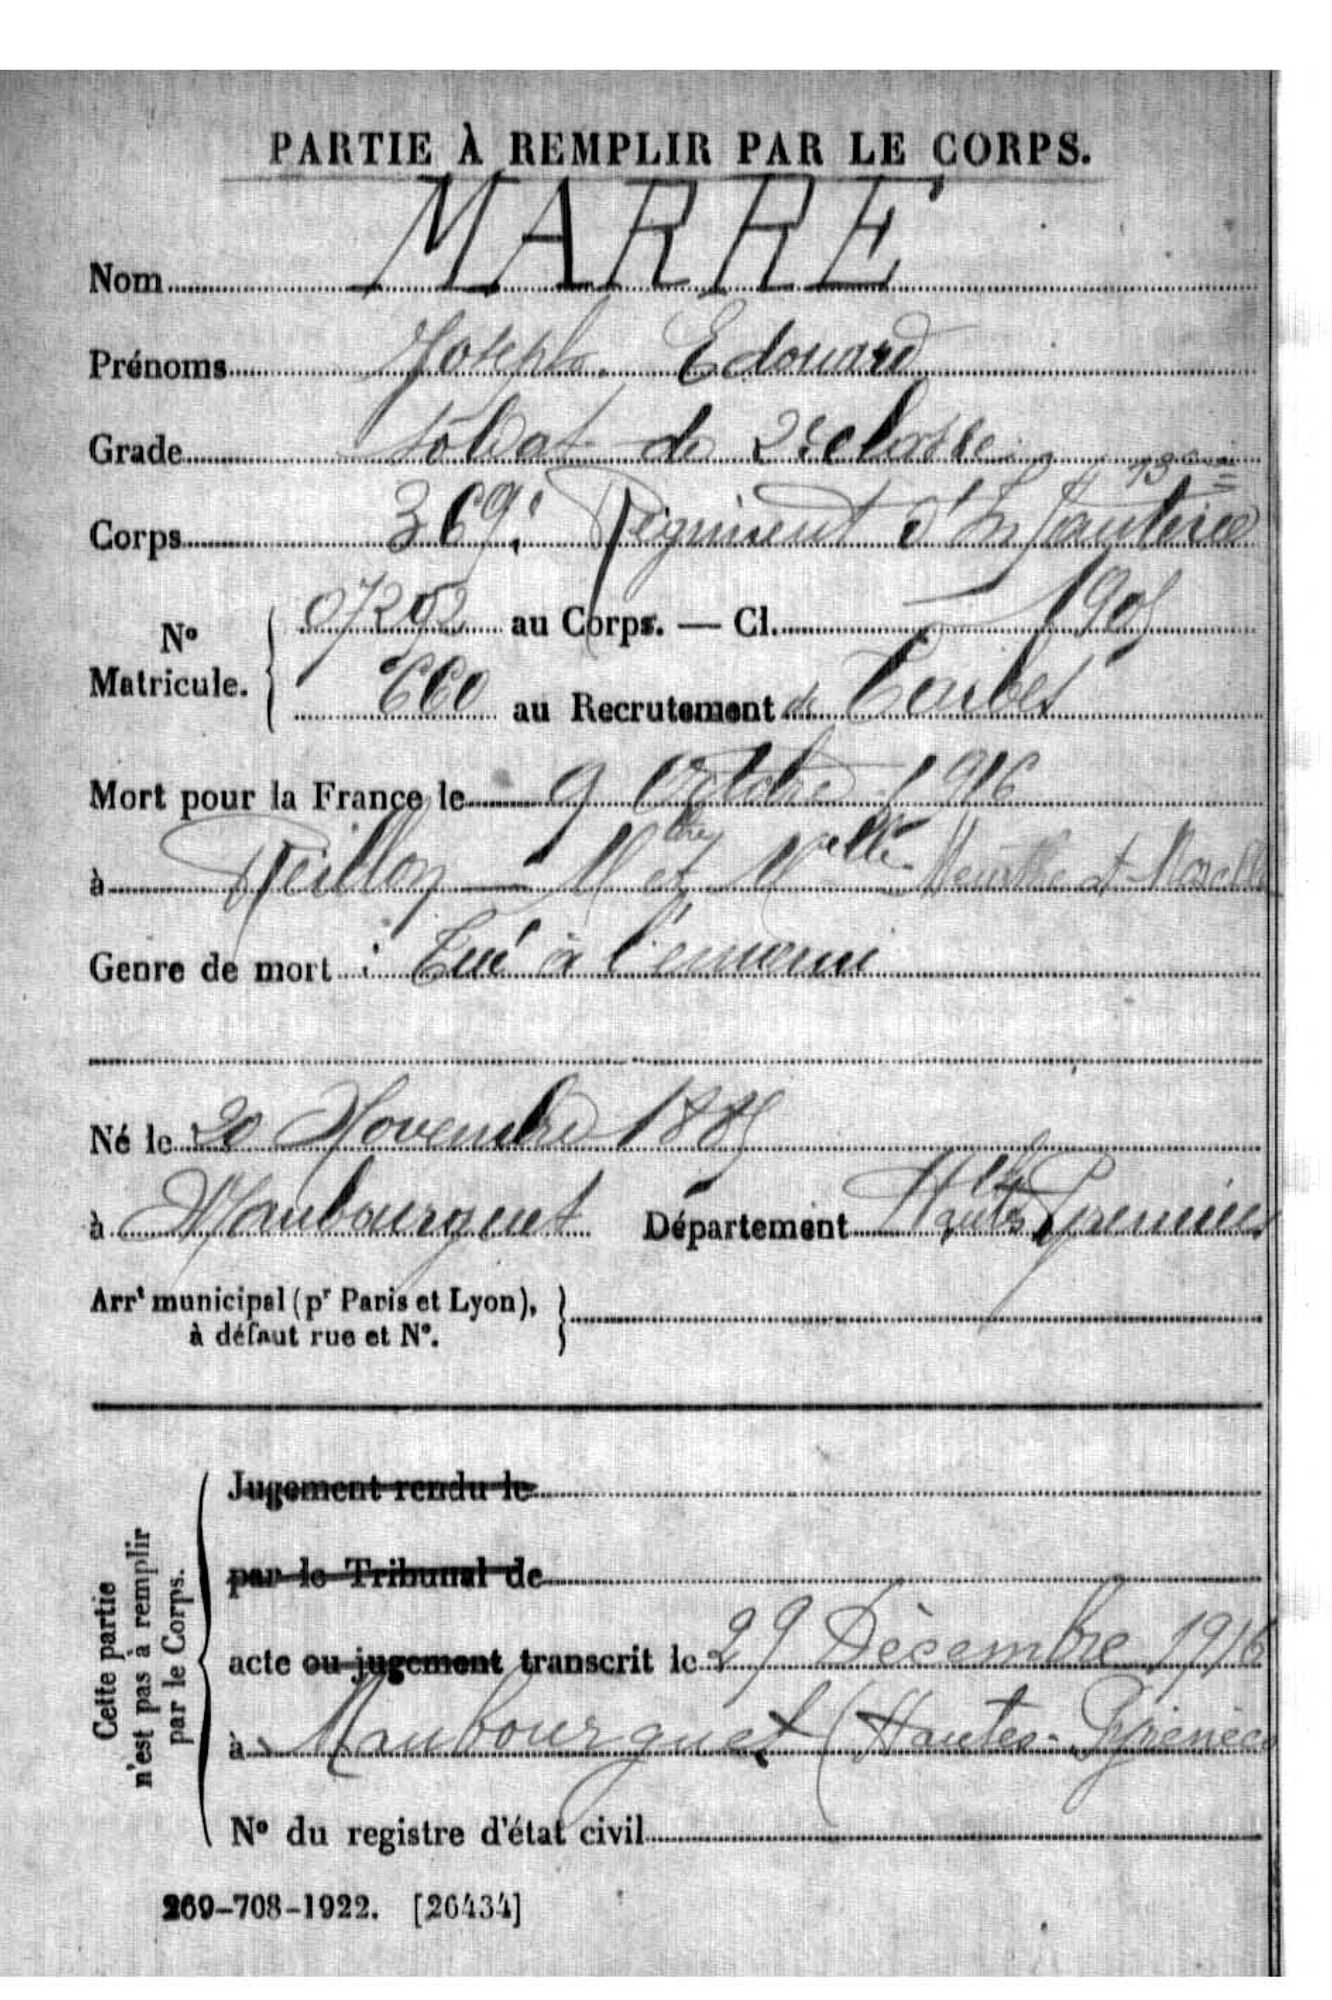 PARTIE À REMPLIR PAR LE CORPS.
Nom MARRE
Prénoms Joseph. Edouard
Grade soldat de 2e classe
Corps 369e Régiment d'Infanterie
No Matricule. 07292 au Corps. — Cl. 1905
660 au Recrutement de Tarbes
Mort pour la France le 9 Octobre 1916
à Reillon — Mthe et Melle Meurthe et Moselle
Genre de mort : Tué à l'ennemi
Né le 20 Novembre 1885
à Maubourguet Département Htes Hautes Pyrénées
Arrt municipal (pr Paris et Lyon),
à défaut rue et No.
Cette partie
n'est pas à remplir
par le Corps.
Jugement rendu le
par le Tribunal de
acte ou jugement transcrit le 29 Décembre 1916
à Maubourguet (Hautes-Pyrénées
No du registre d'état civil
269-708-1922. [26434]